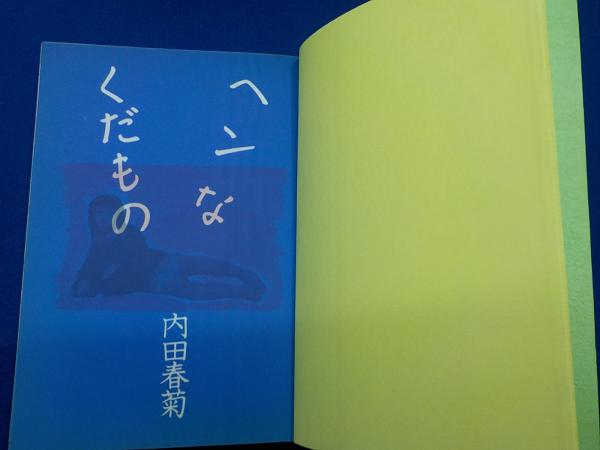 ヘンな
くだもの
内田春菊